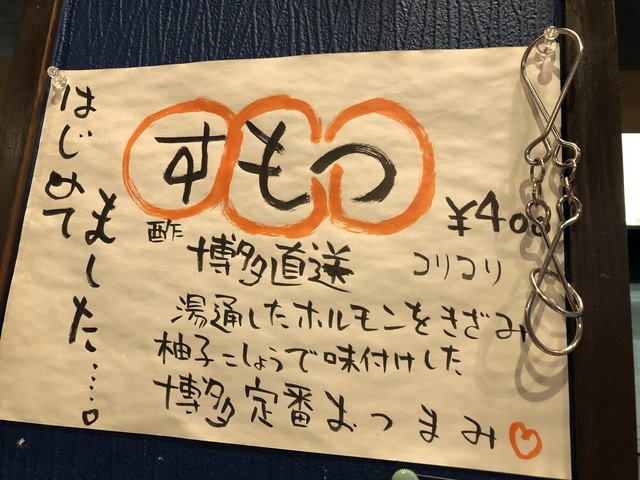 はじめて
ました....。
すもつ
酢
¥408
博多直送
コリコリ
湯通ししたホルモンをきざみ
柚子こしょうで味付けした
博多定番おつまみ